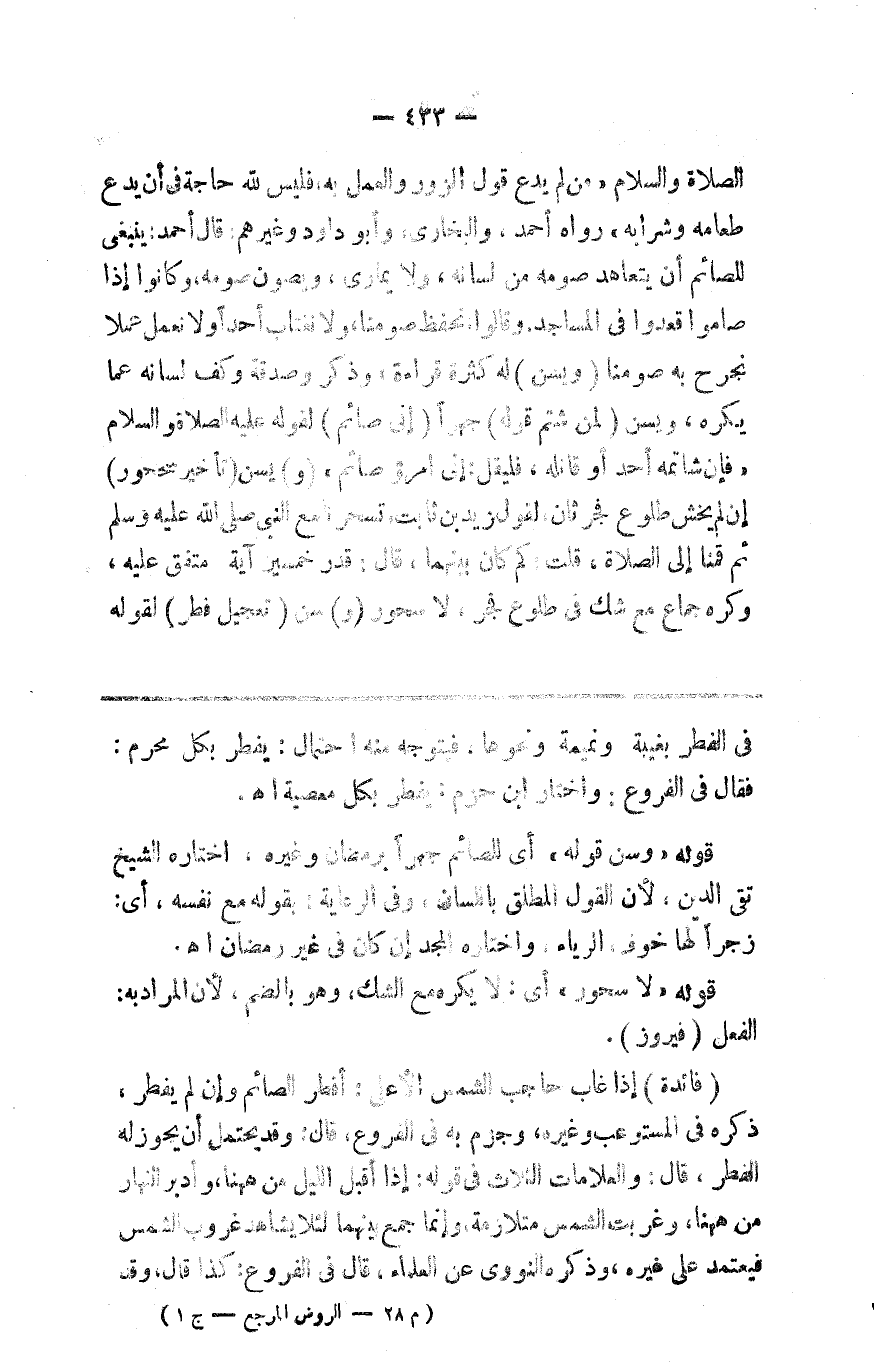 — ٤٣٣ —
الصلاة والسلام « من لم يدع قول الزور والعمل به، فليس لله حاجة فى أن يدع
طعامه وشرابه » رواه أحمد ، والبخارى، وأبو داود وغيرهم. قال أحمد: ينبغى
للصائم أن يتعاهد صومه من لسانه ، ولا يمارى ، ويصون صومه، وكانوا إذا
صاموا قعدوا فى المساجد. وقالوا: نحفظ صومنا، ولا نغتاب أحداً ولا نعمل عملا
نجرح به صومنا ( ويسن ) له كثرة قراءة ، وذكر وصدقة وكف لسانه عما
يكره ، ويسن ( لمن شتم قوله ) جهراً ( إنى صائم ) لقوله عليه الصلاة والسلام
« فإن شاتمه أحد أو قاتله ، فليقل: إنى امرؤ صائم » (و) يسن (تأخير سحور)
إن لم يخش طلوع فجر ثان، لقول زيد بن ثابت، تسحرنا مع النبى صلى الله عليه وسلم
ثم قمنا إلى الصلاة ، قلت : كم كان بينهما ، قال : قدر خمسين آية متفق عليه ،
وكره جماع مع شك فى طلوع فجر ، لا سحور (و) سن ( تعجيل فطر ) لقوله
فى الفطر بغيبة ونميمة ونحوها . فيتوجه منه احتمال : يفطر بكل محرم :
فقال فى الفروع : واختار ابن حزم : يفطر بكل معصية ا ه .
قوله « وسن قوله » أى للصائم جهراً برمضان وغيره ، اختاره الشيخ
تقى الدين ، لأن القول المطلق باللسان ، وفى الرعاية : يقوله مع نفسه ، أى:
زجراً لها خوف الرياء ، واختاره المجد إن كان فى غير رمضان ا ه .
قوله « لا سحور » أى : لا يكره مع الشك، وهو بالضم ، لأن المراد به:
الفعل ( فيروز ) .
( فائدة ) إذا غاب حاجب الشمس الأعلى : أفطر الصائم وإن لم يفطر ،
ذكره فى المستوعب وغيره، وجزم به فى الفروع، قال: وقد يحتمل أن يجوز له
الفطر ، قال : والعلامات الثلاث فى قوله : إذا أقبل الليل من ههنا، وأدبر النهار
من ههنا، وغربت الشمس متلازمة، وإنما جمع بينهما لئلا يشاهد غروب الشمس
فيعتمد على غيره ، وذكره النووى عن العلماء ، قال فى الفروع : كذا قال، وقد
( م ٢٨ — الروض المربع — ج ١ )